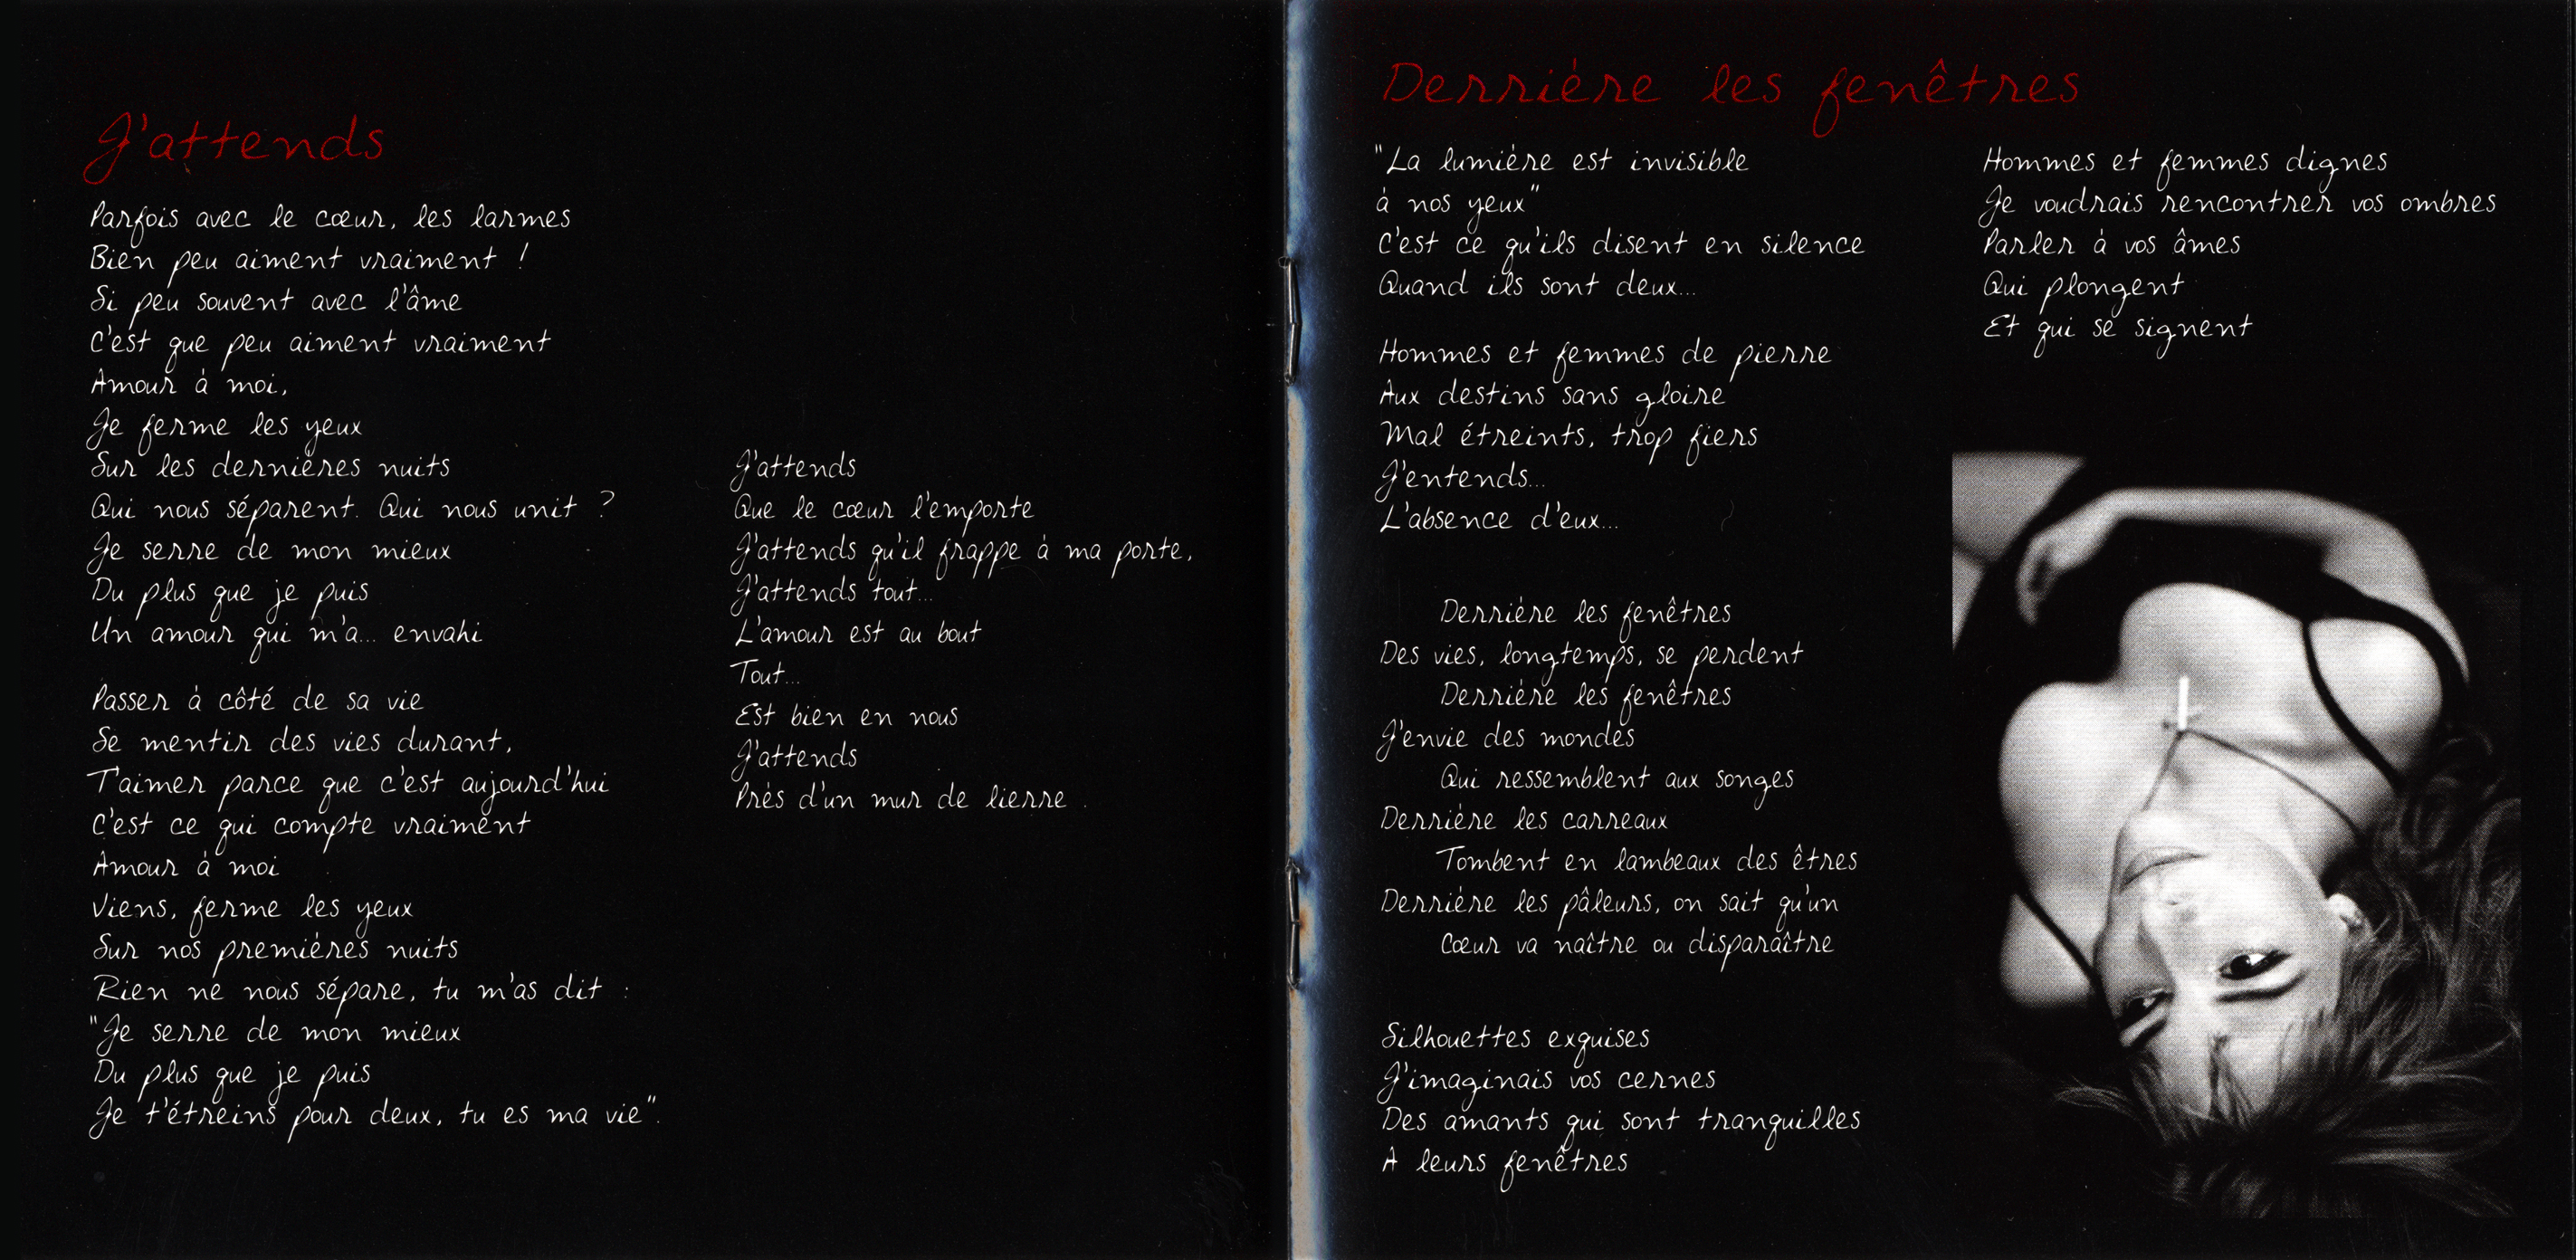 J'attends
Parfois avec le cœur, les larmes
Bien peu aiment vraiment !
Si peu souvent avec l'âme
C'est que peu aiment vraiment
Amour à moi,
Je ferme les yeux
Sur les dernières nuits
Qui nous séparent. Qui nous unit ?
Je serre de mon mieux
Du plus que je puis
Un amour qui m'a... envahi
Passer à côté de sa vie
Se mentir des vies durant,
T'aimer parce que c'est aujourd'hui
C'est ce qui compte vraiment
Amour à moi
Viens, ferme les yeux
Sur nos premières nuits
Rien ne nous sépare, tu m'as dit :
"Je serre de mon mieux
Du plus que je puis
Je t'étreins pour deux, tu es ma vie".
J'attends
Que le cœur l'emporte
J'attends qu'il frappe à ma porte,
J'attends tout...
L'amour est au bout
Tout...
Est bien en nous
J'attends
Près d'un mur de lierre .
Derrière les fenêtres
"La lumière est invisible
à nos yeux"
C'est ce qu'ils disent en silence
Quand ils sont deux...
Hommes et femmes de pierre
Aux destins sans gloire
Mal étreints, trop fiers
J'entends...
L'absence d'eux...
Derrière les fenêtres
Des vies, longtemps, se perdent
Derrière les fenêtres
J'envie des mondes
Qui ressemblent aux songes
Derrière les carreaux
Tombent en lambeaux des êtres
Derrière les pâleurs, on sait qu'un
Cœur va naître ou disparaître
Silhouettes exquises
J'imaginais vos cernes
Des amants qui sont tranquilles
A leurs fenêtres
Hommes et femmes dignes
Je voudrais rencontrer vos ombres
Parler à vos âmes
Qui plongent
Et qui se signent